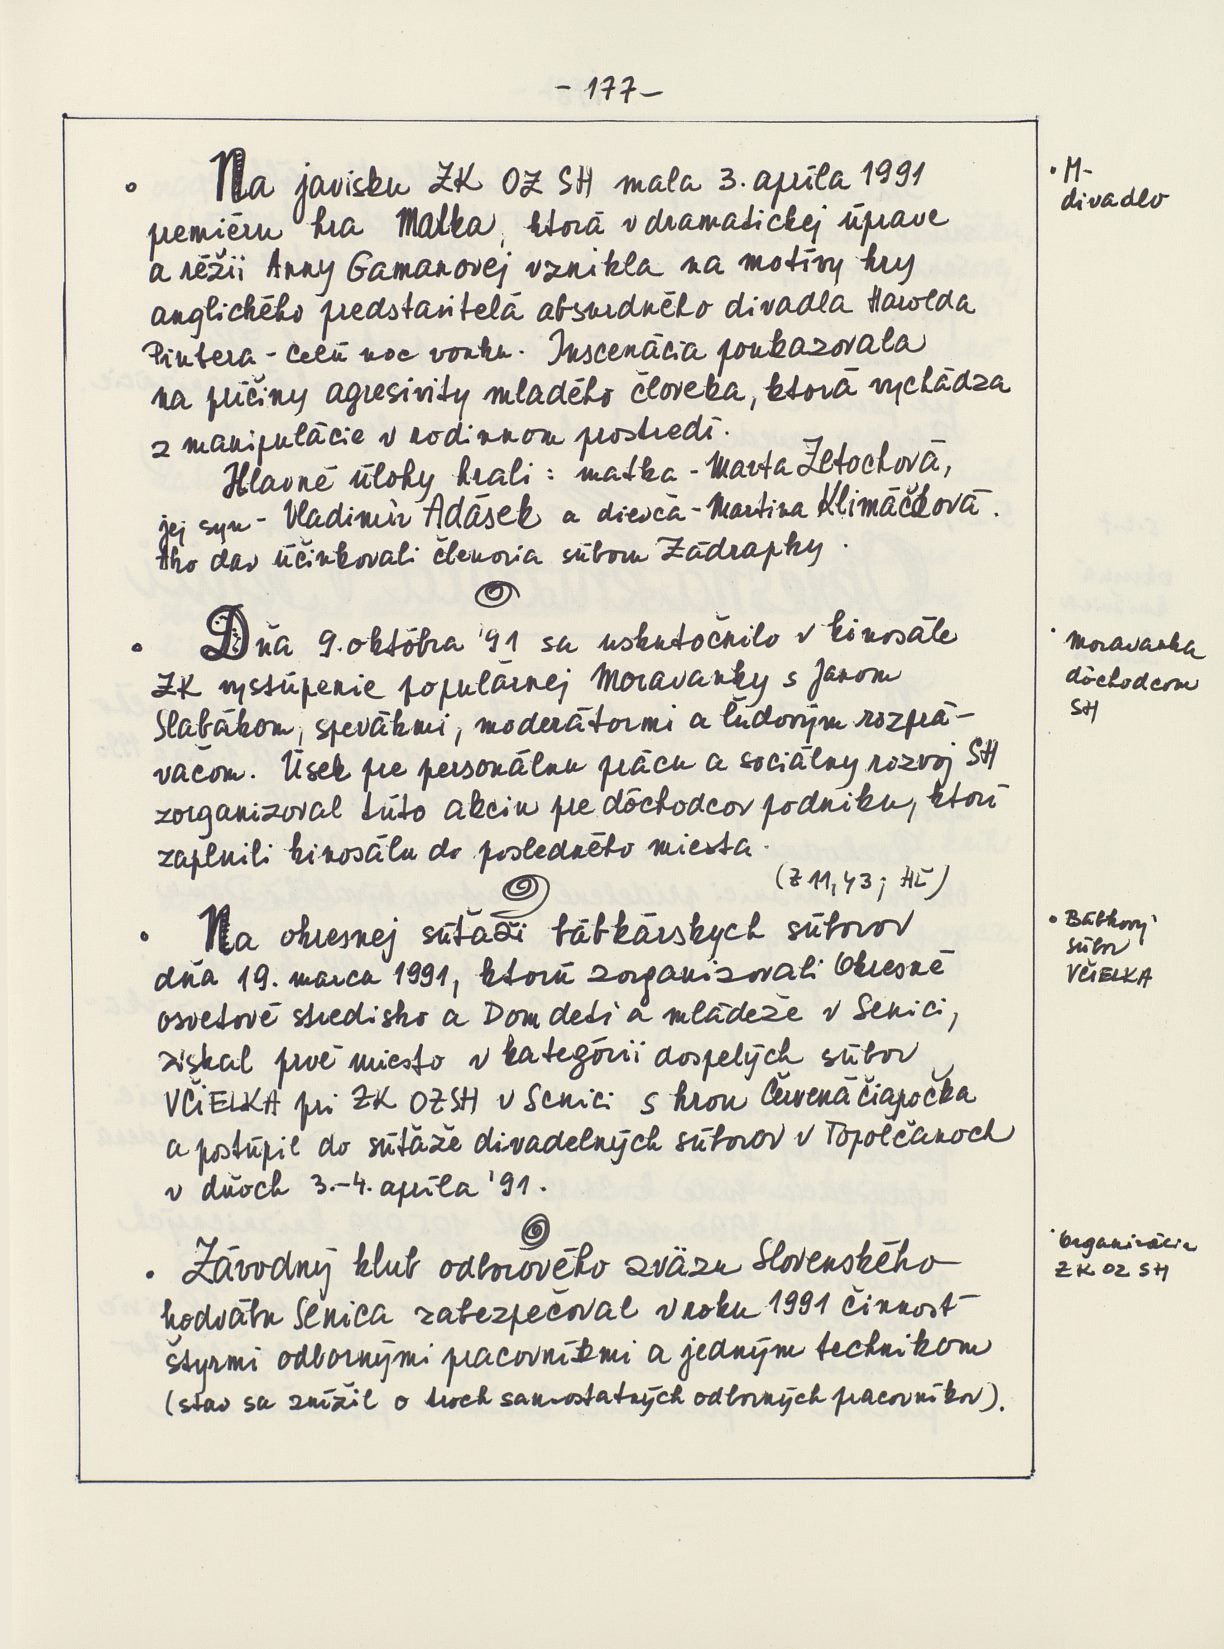 - 177 -
• Na javisku ZK OZ SH mala 3. apríla 1991
premiéru hra Matka, ktorá v dramatickej úprave
a réžii Anny Gamanovej vznikla na motívy hry
anglického predstaviteľa absurdného divadla Harolda
Pintera - Celú noc vonku. Inscenácia poukazovala
na príčiny agresivity mladého človeka, ktorá vychádza
z manipulácie v rodinnom prostredí.
Hlavné úlohy hrali: matka - Marta Zetochová,
jej syn - Vladimír Adásek a dievča - Martina Klimáčková.
Ako dav účinkovali členovia súboru Zádrapky.
• M-
divadlo
• Dňa 9. októbra '91 sa uskutočnilo v kinosále
ZK vystúpenie populárnej Moravanky s Janom
Slabákom, spevákmi, moderátormi a ľudovým rozprá-
vačom. Úsek pre personálnu prácu a sociálny rozvoj SH
zorganizoval túto akciu pre dôchodcov podniku, ktorí
zaplnili kinosálu do posledného miesta.
(Z 11,43; HĽ)
• Moravanka
dôchodcom
SH
• Na okresnej súťaži bábkárskych súborov
dňa 19. marca 1991, ktorú zorganizovali Okresné
osvetové stredisko a Dom detí a mládeže v Senici,
získal prvé miesto v kategórii dospelých súbor
VČIELKA pri ZK OZSH v Senici s hrou Červená čiapočka
a postúpil do súťaže divadelných súborov v Topoľčanoch
v dňoch 3.-4. apríla '91.
• Bábkový
súbor
VČIELKA
• Závodný klub odborového zväzu Slovenského
hodvábu Senica zabezpečoval v roku 1991 činnosť
štyrmi odbornými pracovníkmi a jedným technikom
(stav sa znížil o troch samostatných odborných pracovníkov).
• Organizácia
ZK OZ SH